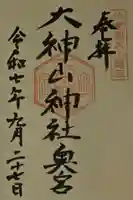 奉拝
大神山神社奥宮
令和七年九月二十七日